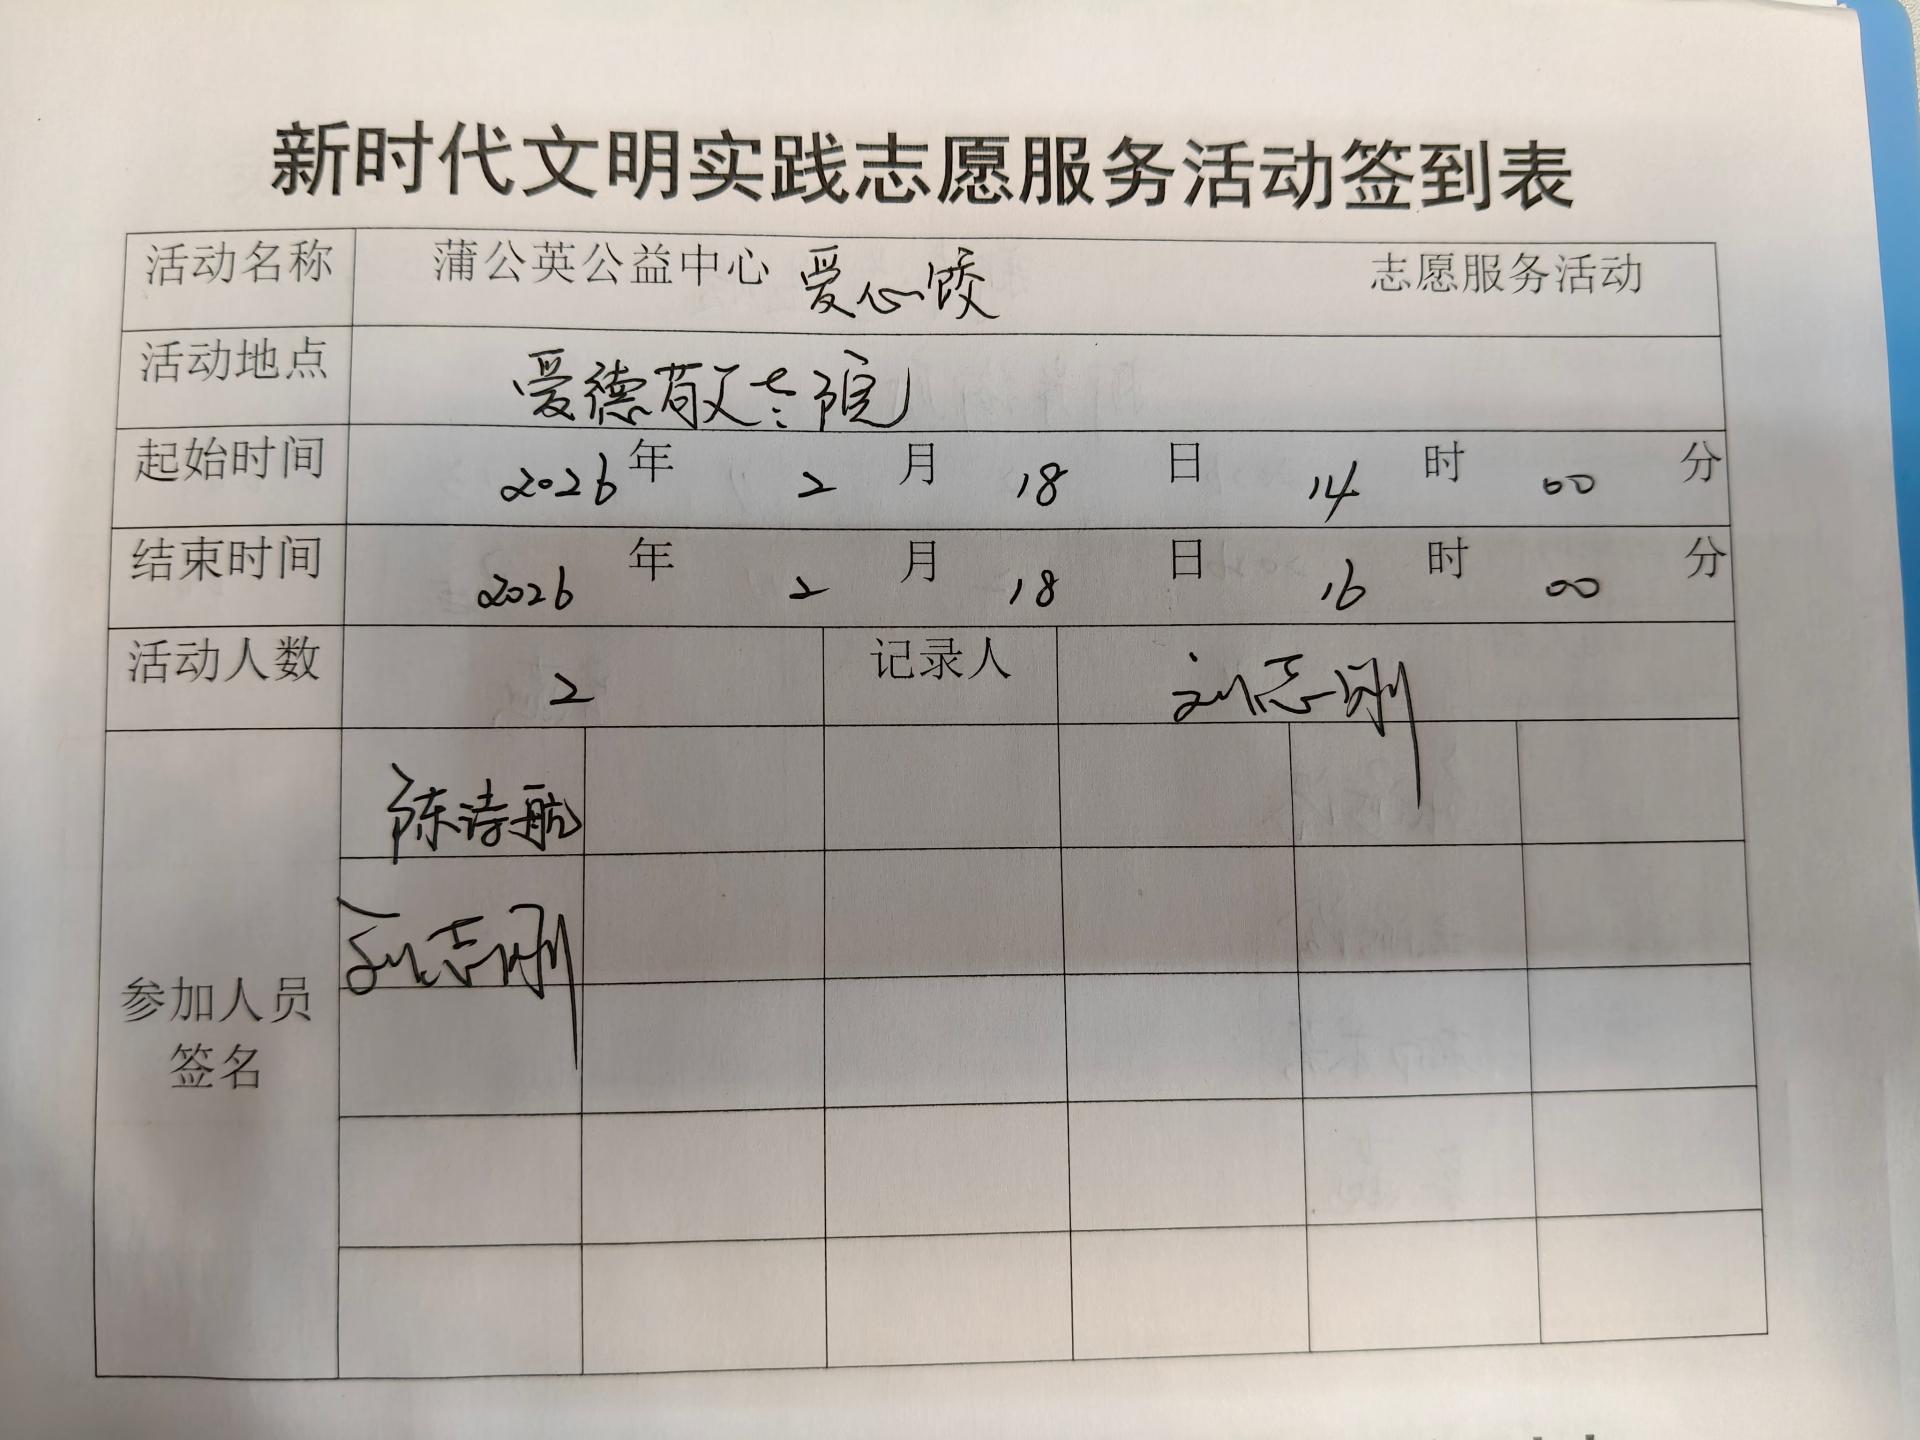 新时代文明实践志愿服务活动签到表
活动名称 蒲公英公益中心 爱心饺 志愿服务活动
活动地点 爱德敬老院
起始时间 2026 年 2 月 18 日 14 时 00 分
结束时间 2026 年 2 月 18 日 16 时 00 分
活动人数 2 记录人 刘志刚
陈诗航
刘志刚
参加人员
签名